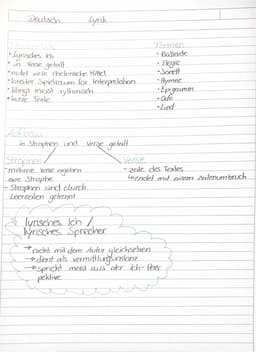 Deutsch Lyrik
• lyrisches Ich
• in Verse geteilt
• nutzt viele rhetorische Mittel
• breiter Spielraum für Interpretation
• klingt meist rythmisch
• kurze Texte
Formen
• Ballade
• Elegie
• Sonett
• Hymne
• Epigramm
• Ode
• Lied
Aufbau
in Strophen und Verse geteilt
Strophen
- mehrere Verse ergeben
eine Strophe
- Strophen sind durch
Leerzeilen getrennt
Verse
- Zeile des Textes
endet mit einem Zeilenumbruch
lyrisches Ich /
lyrisches Sprecher
→ nicht mit dem Autor gleichsetzen
→ dient als Vermittlungsinstanz
→ spricht meist aus der Ich-Per
pektive